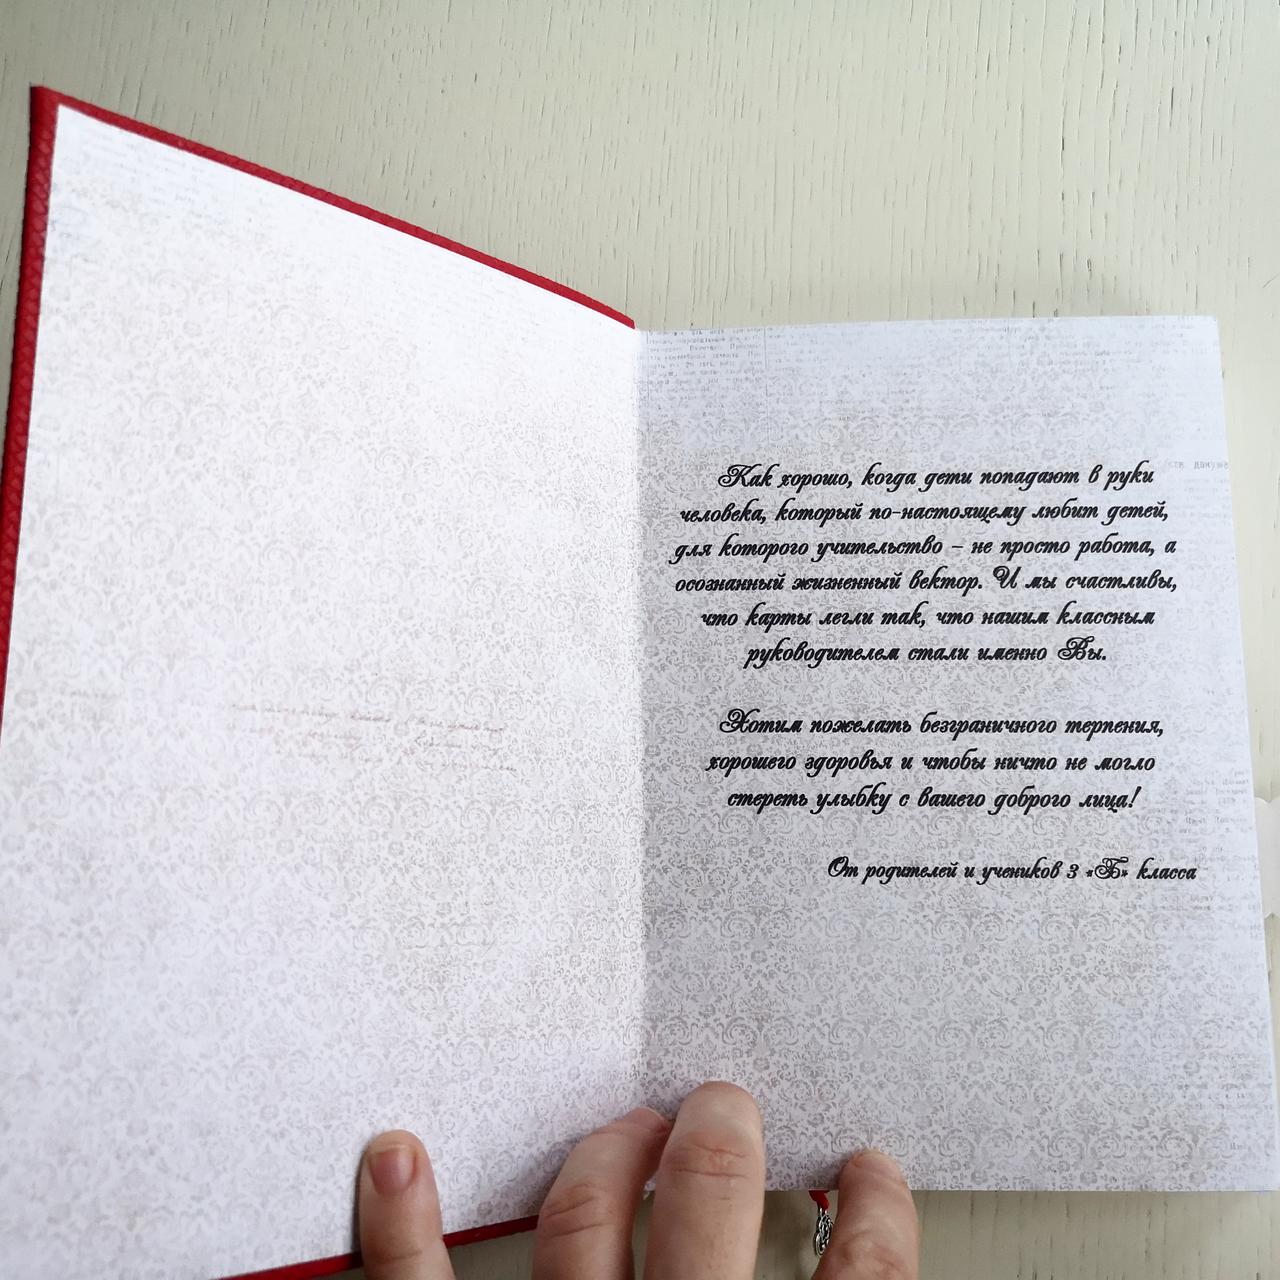 Как хорошо, когда дети попадают в руки
человека, который по-настоящему любит детей,
для которого учительство – не просто работа, а
осознанный жизненный вектор. И мы счастливы,
что карты легли так, что нашим классным
руководителем стали именно Вы.
Хотим пожелать безграничного терпения,
хорошего здоровья и чтобы ничто не могло
стереть улыбку с вашего доброго лица!
От родителей и учеников 3 «Б» класса